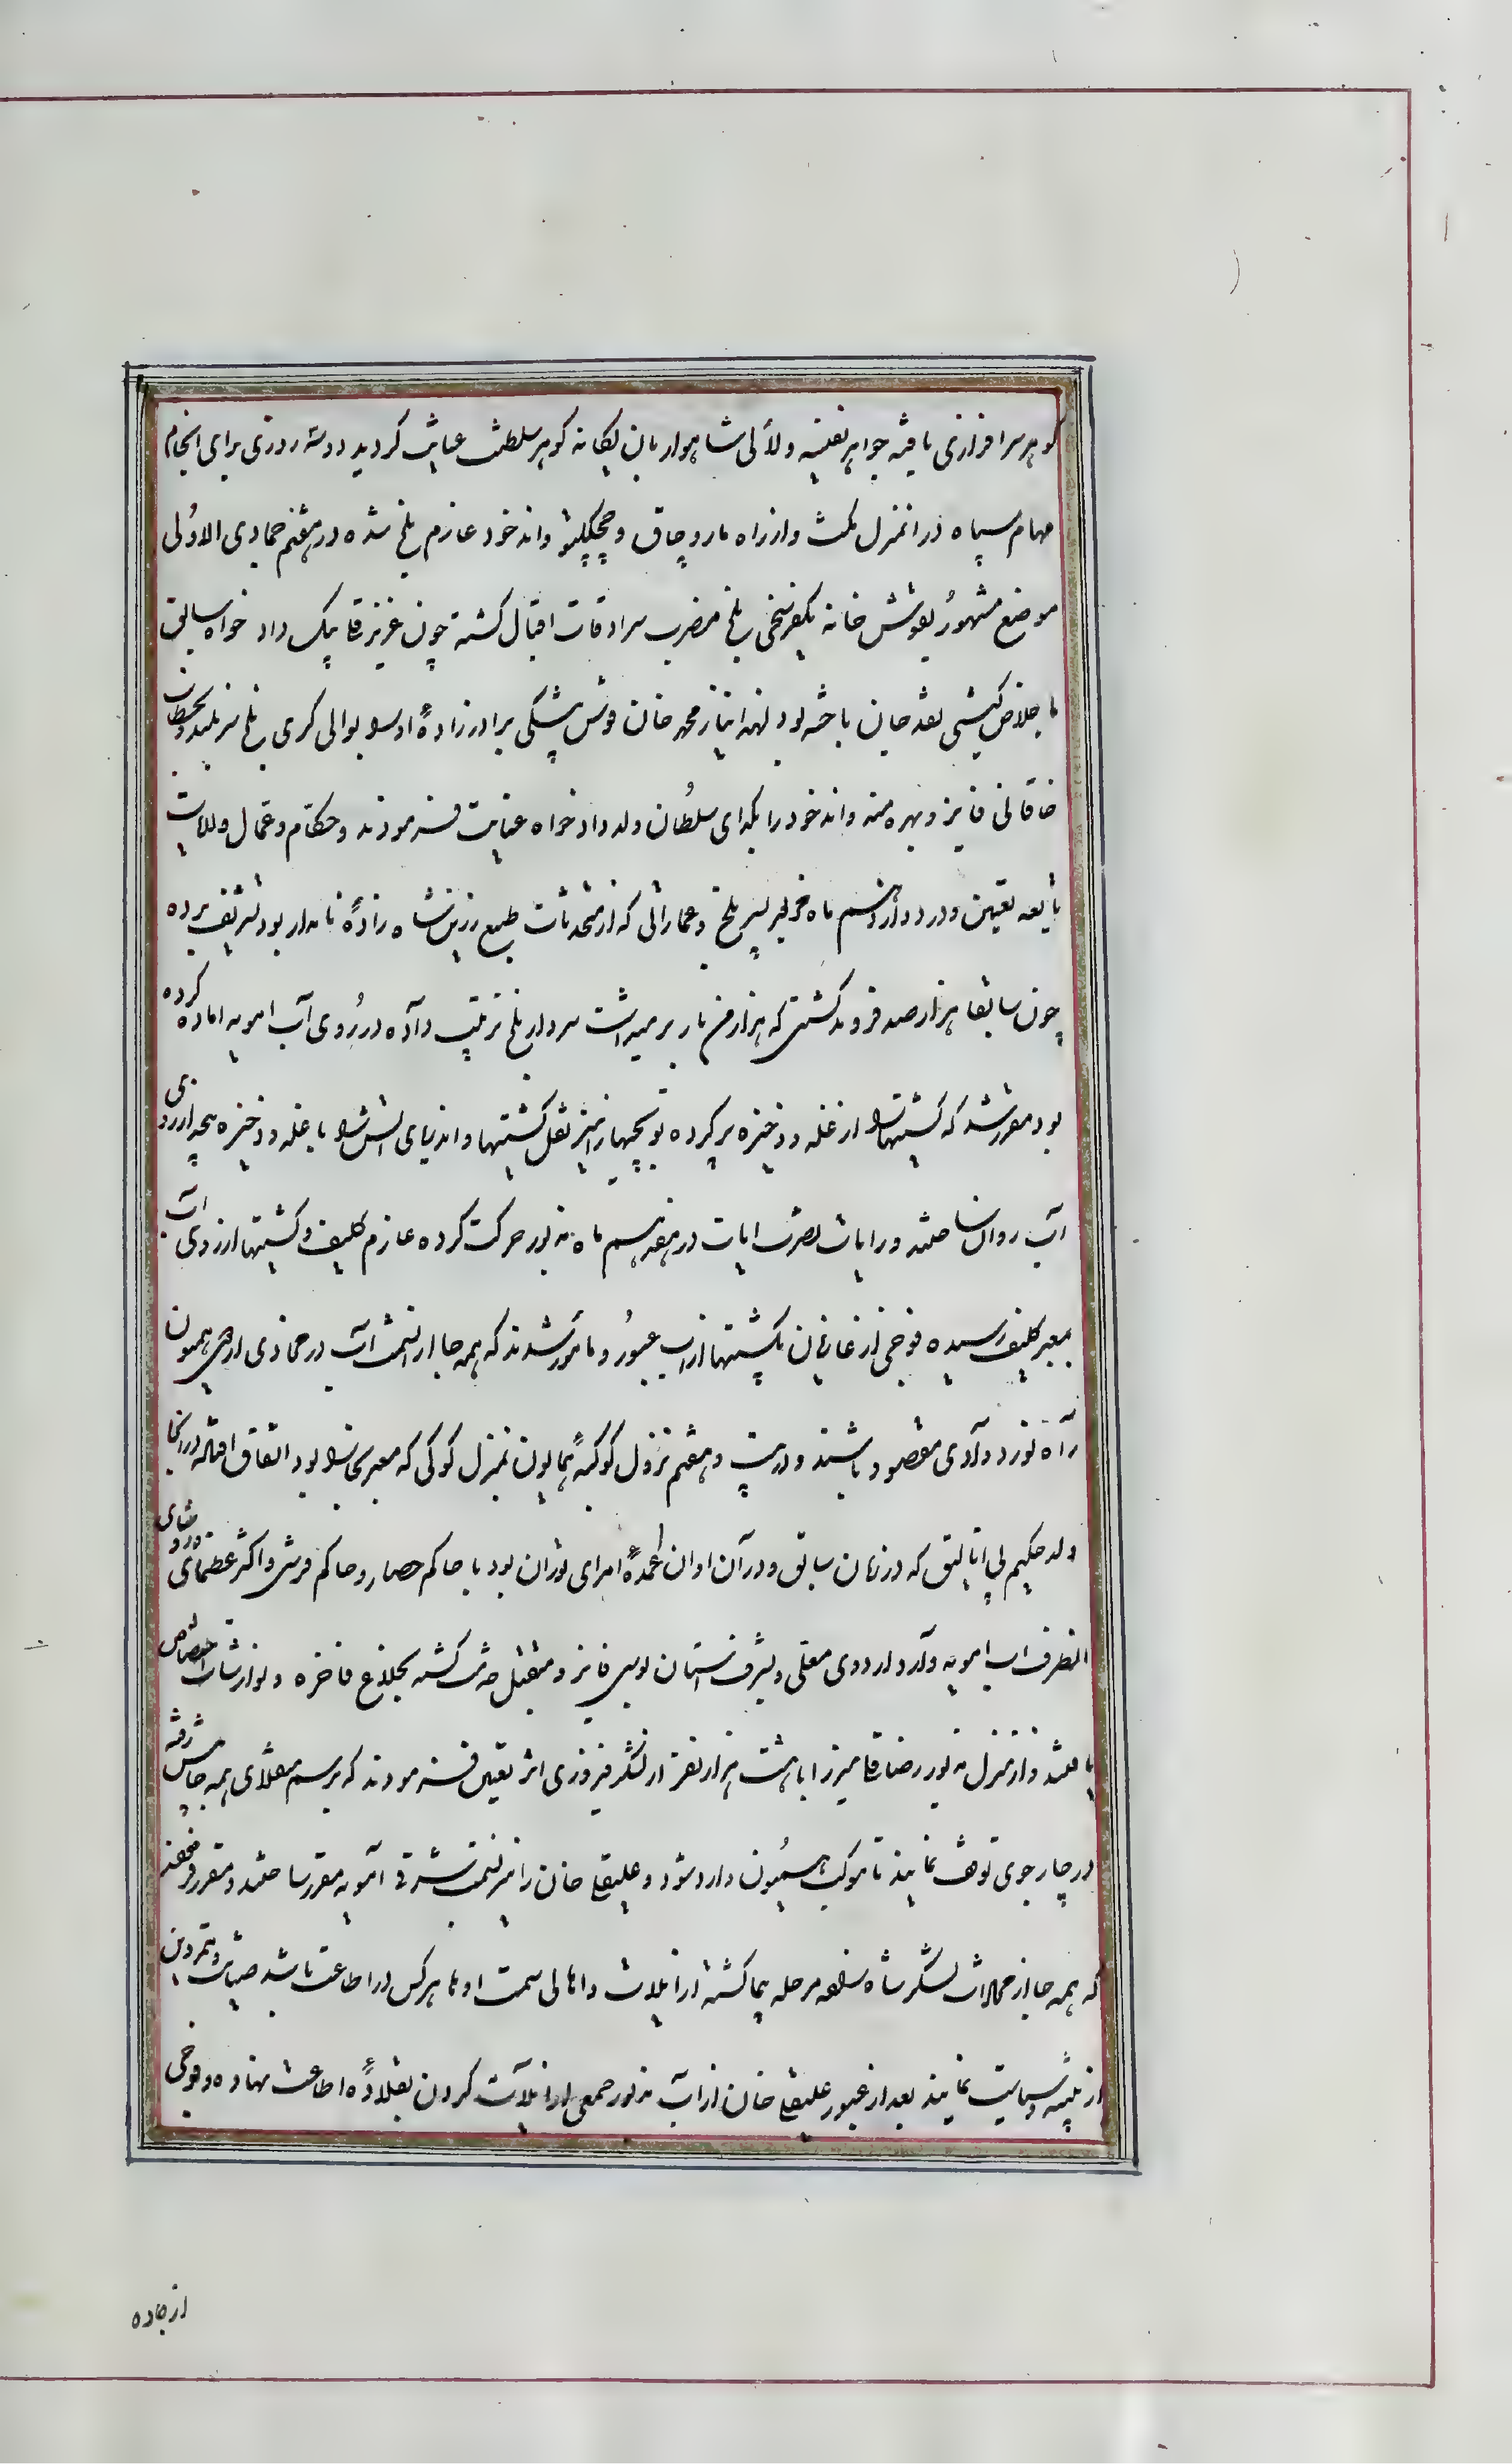 گوهر سرافرازی یافته جواهر نفیسه و لآلی شاهوار بان یگانه گوهر سلطنت عنایت گردید دو سه روزی برای انجام
مهام سپاه در انمنزل مکث و از راه ماروچاق و چیچکتو و اندخود عازم بلخ شده در هفتم جمادی الاولی
موضع مشهور بقوشخانه یکفرسخی بلخ مضرب سرادقات اقبال گشته چون عزیز قلی بیک داد خواه سابق
با خلاص کیشی نقد جان باخته بود لهذا نیاز محمد خان قوش بیگی برادرزادهٔ او را بوالی گری بلخ سربلند و بخطاب
خاقانی فایز و بهره مند و اندخود را بگدای سلطان ولد داد خواه عنایت فرمودند و حکام و عمال ولایات
تعیین و در دوازدهم ماه مزبور بسیر بلخ و عماراتی که از محدثات طبع رزین شاه زادهٔ نامدار بود تشریف برده
چون سابقا هزار صد فروند کشتی که هزار من بار برمیداشت سردار بلخ ترتیب داده در روی آب امویه اماده کرده
بود مقرر شد که کشتیها را از غله و ذخیره پر کرده توپچیها را نیز نقل کشتیها و از دریای اتش را با غله و ذخیره بچهارروی
آب روان ساختند و رایات نصرت ایات در هفدهم ماه مزبور حرکت کرده عازم کلیف و کشتیها از روی آب
بمعبر کلیف رسیده فوجی از غازیان بکشتیها از اب عبور و مامور شدند که همه جا از انسمت آب در محاذی اردوی همیون
راه نورد وادی مقصود باشند و در بیست و هفتم نزول کوکبهٔ همایون بمنزل کوکی که معبر بخارا بود اتفاق افتاده در انجا
ولد حکیم بی اتالیق که در زمان سابق و در آن اوان عمدهٔ امرای توران بود با حاکم حصار و حاکم قرشی و اکثر عظمای و رؤسای
انطرف اب امویه وارد اردوی معلی و بشرف استان بوسی فایز و مقبل حضرت گشته بخلاع فاخره و نوازشات اختصاص
یافتند و از منزل مزبور رضا قلی میرزا با هشت هزار نفر از لشکر فیروزی اثر تعیین فرمودند که برسم منقلای همه جا پیش رفته
در چارجوی توقف نمایند تا موکب همیون وارد شود و علیقلی خان را نیز بسمت شرقی آمویه مقرر ساختند و مقرر فرمودند
که همه جا از محاذات لشکر شاه زاده مرحله پیما گشته از ایلات و اهالی سمت او ها هر کس در اطاعت باشد صیانت و متمردین
از تنبیه و سیاست نمایند بعد از عبور علیقلی خان از آب مزبور جمعی از ایلات گردن بقلادهٔ اطاعت نهاده و فوجی
از جاده